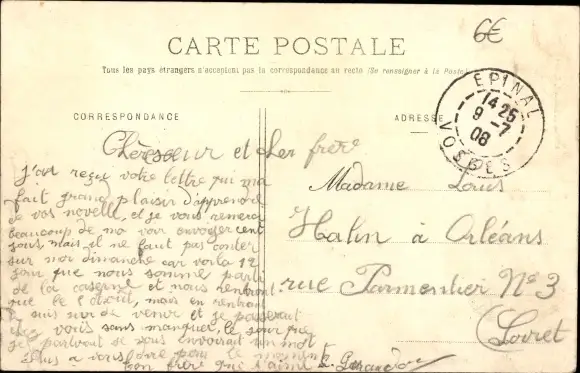 6€
CARTE POSTALE
Tous les pays étrangers n'acceptent pas la correspondance au recto (Se renseigner à la Poste)
CORRESPONDANCE
ADRESSE
EPINAL
14 25
9 - 7
08
VOSGES
Chère soeur et cher frère
j'ai reçue votre lettre qui ma
fait grand plaisir d'apprendre
de vos novelle, et je vous remerci
beaucoup de ma voir envoyer cent
sous, mais il ne faut pas conter
sur moi dimanche car voila 12
jour que nous somme parti
de la caserne et nous rentront
que le 1 Août, mais en rentrant
je suis sur de venir et je passerait
chez vous sans manquer, le jour que
je partirait je vous envoirait un mot
plus a vous dire pour le moment
ton frère qui t'aime
Madame Louis
Hahn à Orléans
rue Parmentier No 3
(Loiret)